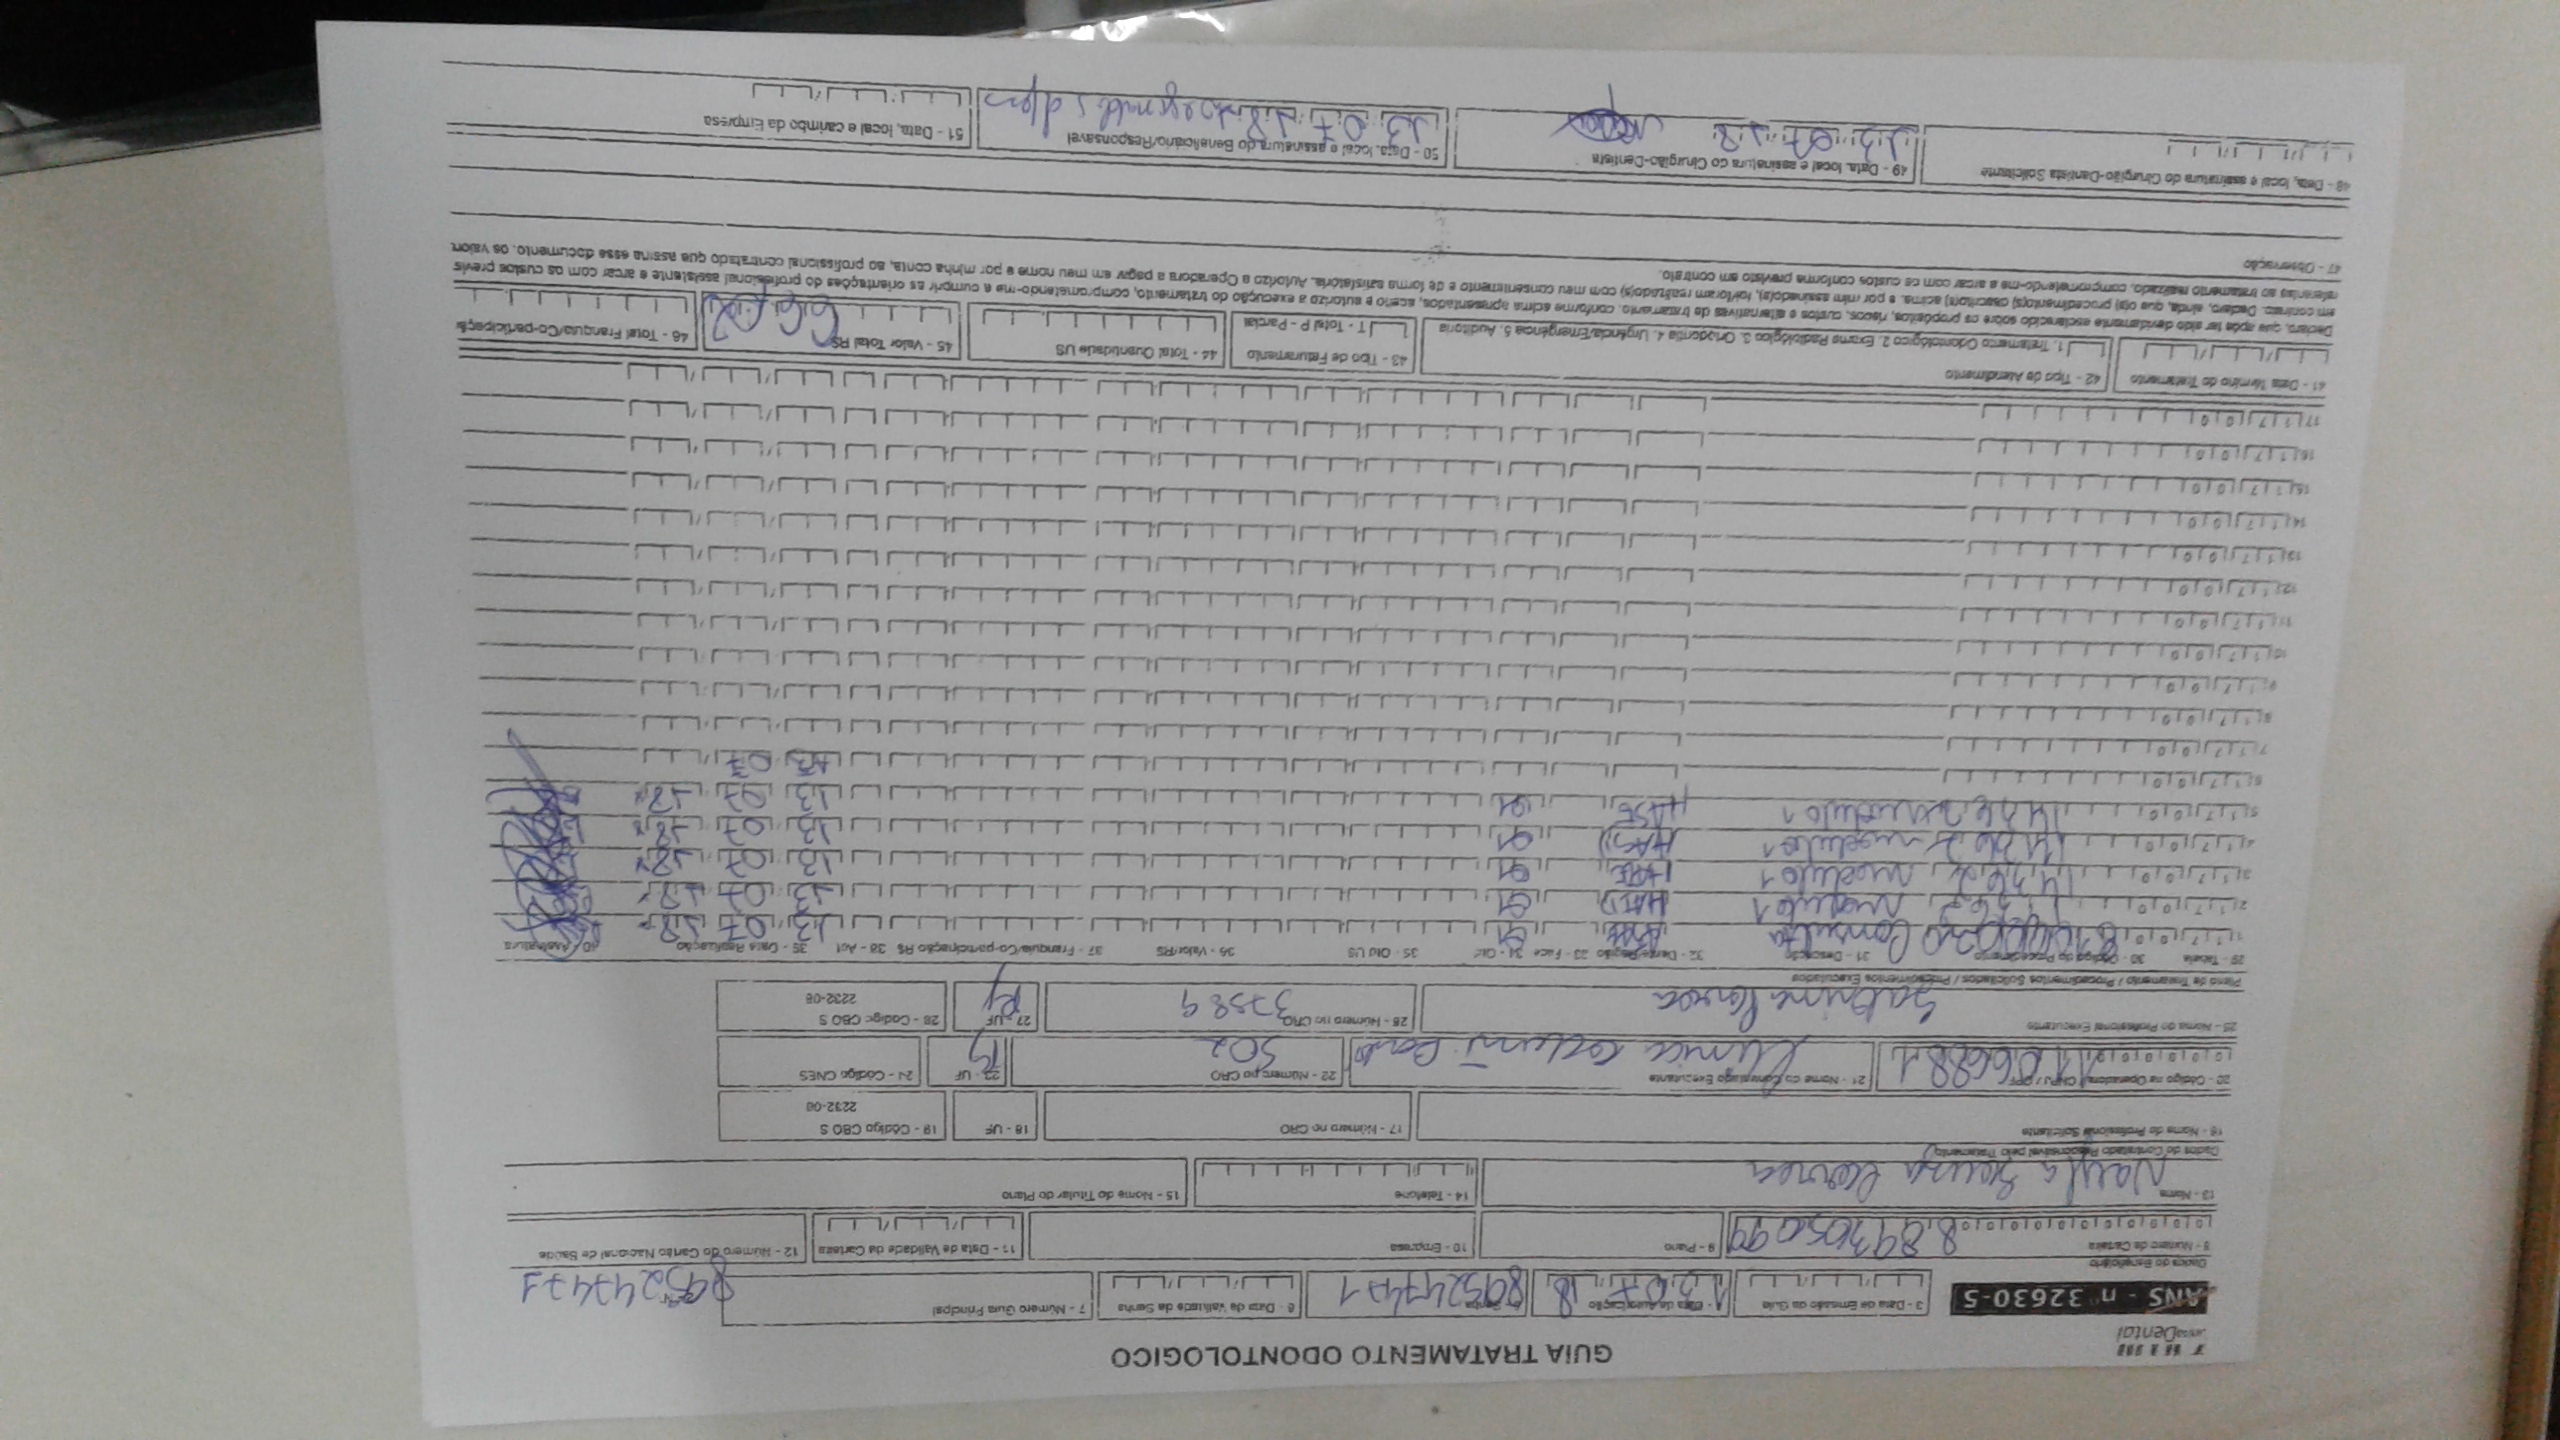 GUIA TRATAMENTO ODONTOLOGICO
Dental
ANS - nº 32630-5
3 - Data de Emissão da Guia
4 - Data da Autorização 13 07 18
5 - Senha 895247471
6 - Data de Validade da Senha
7 - Número Guia Principal
895247471
Dados do Beneficiário
8 - Número da Carteira 00000000000000 889305099
9 - Plano
10 - Empresa
11 - Data de Validade da Carteira
12 - Número do Cartão Nacional de Saúde
13 - Nome Nayla Souza Correa
14 - Telefone
15 - Nome do Titular do Plano
Dados do Contratado Responsável pelo Tratamento
16 - Nome do Profissional Solicitante
17 - Número no CRO
18 - UF
19 - Código CBO S 2232-08
20 - Código na Operadora / CNPJ / CPF 11066881
21 - Nome do Contratado Executante Clinica
22 - Número no CRO 502
23 - UF Rj
24 - Código CNES
25 - Nome do Profissional Executante Sabrina
26 - Número no CRO 37589
27 - UF Rj
28 - Código CBO S 2232-08
Plano de Tratamento / Procedimentos Solicitados / Procedimentos Executados
29 - Tabela 30 - Código do Procedimento 31 - Descrição 32 - Dente/Região 33 - Face 34 - Qtd 35 - Qtd US 36 - Valor/R$ 37 - Franquia/Co-participação R$ 38 - Aut 39 - Data Realização 40 - Assinatura
1 1700 81000030 Consulta 01 13 07 18
2 1700 modulo 1 HAID 01 13 07 18
3 1700 14362 modulo 1 HAIE 01 13 07 18
4 1700 14362 modulo 1 HASD 01 13 07 18
5 1700 14362 modulo 1 HASE 01 13 07 18
6 1700 13 07
7 1700
8 1700
9 1700
10 1700
11 1700
12 1700
13 1700
14 1700
15 1700
16 1700
17 1700
41 - Data Término do Tratamento
42 - Tipo de Atendimento
1. Tratamento Odontológico 2. Exame Radiológico 3. Ortodontia 4. Urgência/Emergência 5. Auditoria
43 - Tipo de Faturamento
T - Total P - Parcial
44 - Total Quantidade US
45 - Valor Total R$ 66,02
46 - Total Franquia/Co-participaçã
Declaro, que após ter sido devidamente esclarecido sobre os propósitos, riscos, custos e alternativas de tratamento, conforme acima apresentados, aceito e autorizo a execução do tratamento, comprometendo-me a cumprir as orientações do profissional assistente e arcar com os custos previs
em contrato. Declaro, ainda, que o(s) procedimento(s) descrito(s) acima, e por mim assinado(s), foi/foram realizado(s) com meu consentimento e de forma satisfatória. Autorizo a Operadora a pagar em meu nome e por minha conta, ao profissional contratado que assina esse documento, os valore
referentes ao tratamento realizado, comprometendo-me a arcar com os custos conforme previsto em contrato.
47 - Observação
48 - Data, local e assinatura do Cirurgião-Dentista Solicitante
49 - Data, local e assinatura do Cirurgião-Dentista 13 07 18
50 - Data, local e assinatura do Beneficiário/Responsável 13 07 18
51 - Data, local e carimbo da Empresa